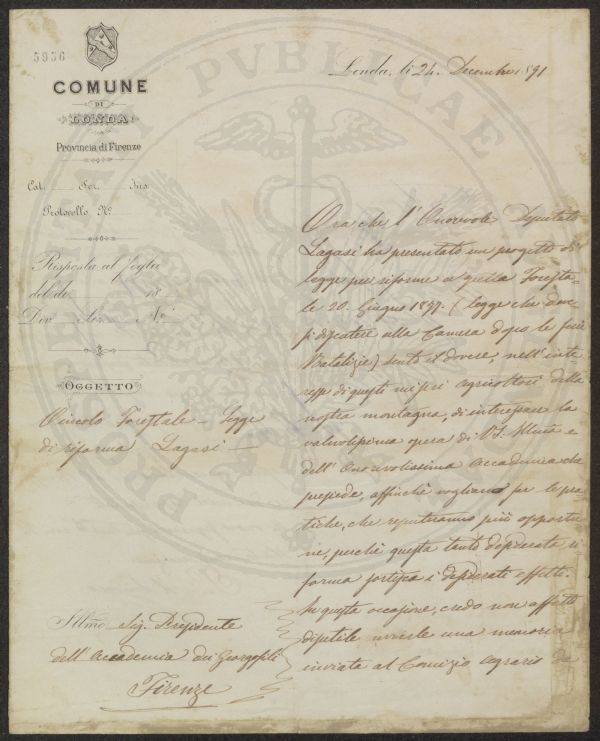 5956
COMUNE
DI
LONDA
Provincia di Firenze
Cat. Fas. Ins.
Protocollo N.º
Risposta al foglio
del dì 18
Div. Sez. N.º
OGGETTO
Vincolo Forestale – Legge
di riforma Lagasi –
Illmo Sig. Presidente
dell'Accademia dei Georgofili
Firenze
Londa, li 24. Decembre 1891
Ora che l'Onorevole Deputato
Lagasi ha presentato un progetto di
legge per riforme a quella Foresta-
le 20. Giugno 1877. (legge che deve
si discutere alla Camera dopo le ferie
Natalizie) sento il dovere, nell'inte
resse di questi miseri agricoltori della
nostra montagna, di interessare la
valevolissima opera di V.S. Illma e
dell'Onorevolissima Accademia che
presiede, affinchè vogliano far le pra-
tiche, che reputeranno più opportu-
ne, perchè questa tanto desiderata ri
forma sortisca i desiderati effetti.
In questa occasione, credo non affatto
inutile una memoria
inviata al Comizio Agrario di
PVBLICAE
PRO